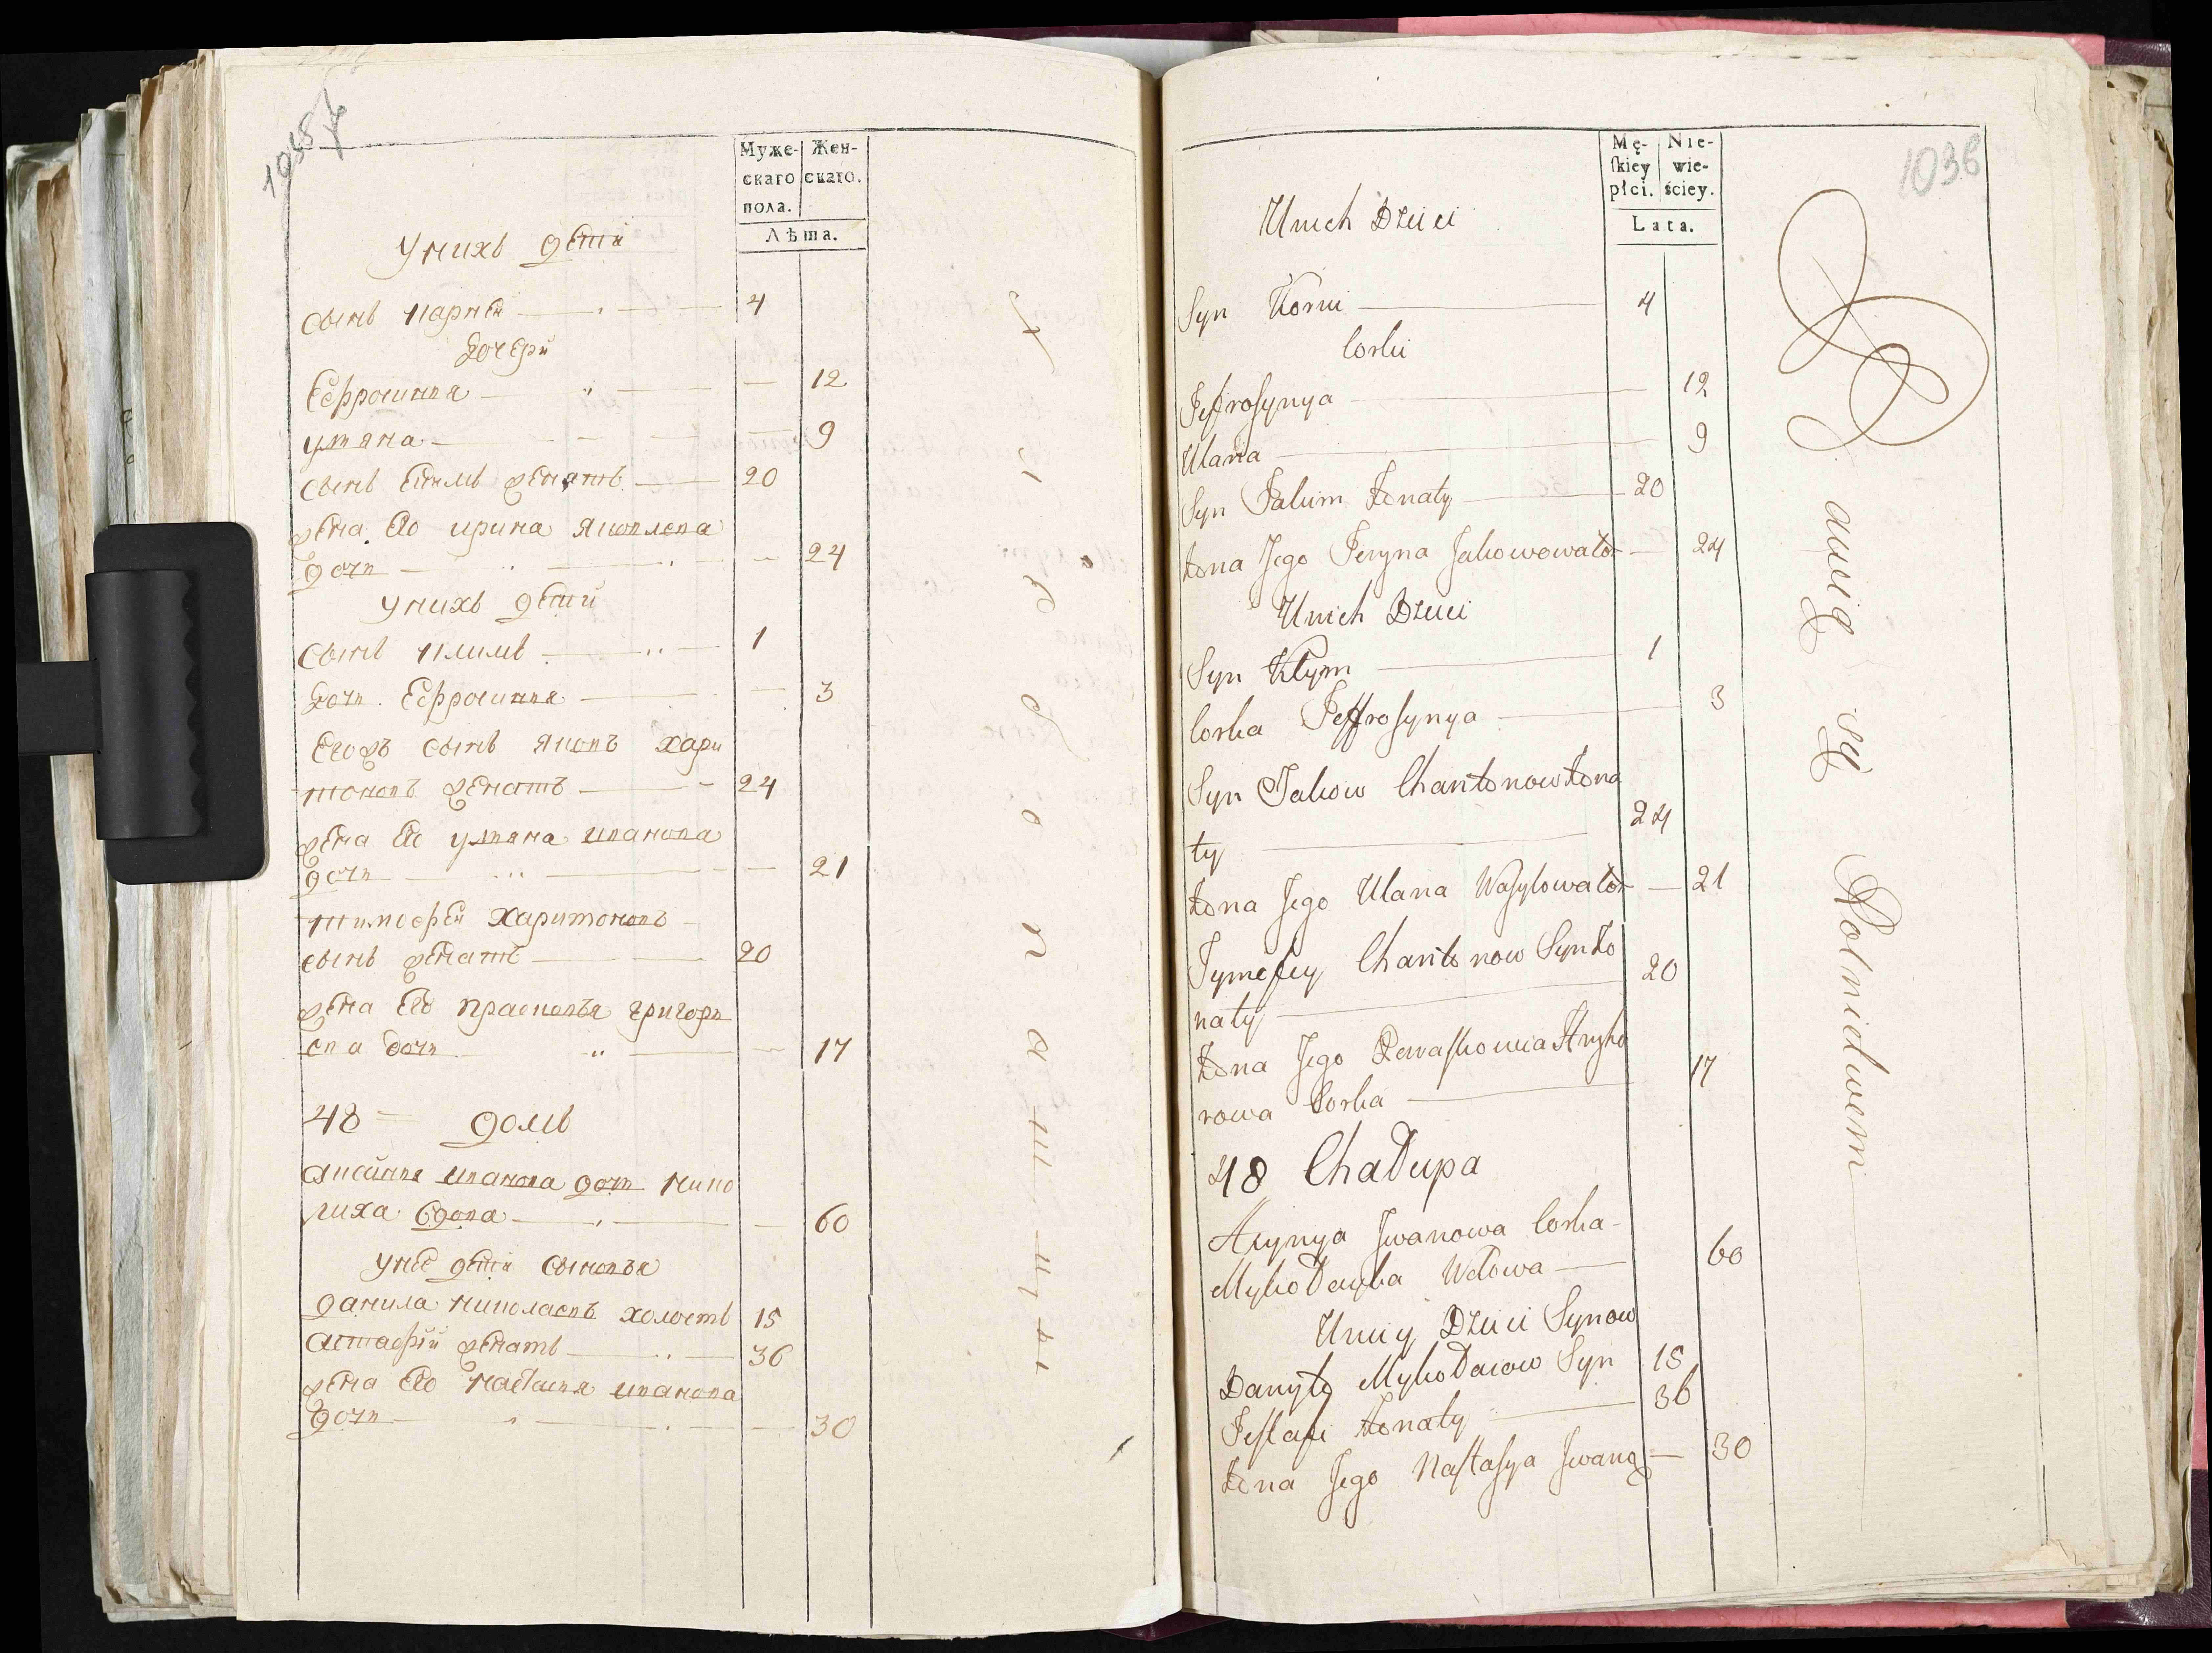 Муже-
скаго
пола.
Жен-
скаго.
Лѣта.
У нихъ дети
сынъ карней 4
дочери
Ефросиния — 12
ульяна — 9
сынъ еким женатъ 20
жена его ирина яковлева
дочь — 24
У нихъ дети
сынъ климъ 1
дочь Ефросиния — 3
Егожъ сынъ яковъ хари
тоновъ женатъ 24
жена его ульяна иванова
дочь — 21
тимофей харитоновъ
сынъ женатъ 20
жена его прасковья григорь
ева дочь — 17
48 домъ
иванова дочь нико
лиха вдова — 60
у неё дети сыновья
данила николаевъ холостъ 15
астафий женатъ 36
жена его настасья иванова
дочь — 30
1036
Mę-
skiey
płci.
Nie-
wie-
ściey.
Lata.
U nich Dzieci
Syn Korni 4
Corki
Jeffrosynya — 12
Ulana — 9
Syn Jakim żonaty 20
żona Jego Jeryna Jakowowa Cor — 24
U nich Dzieci
Syn Kłym 1
Corka Jeffrosynya — 3
Syn Jakow Charitonow żona
ty 24
żona Jego Ulana Wasylowa Cor — 21
Tymofiey Charitonow Syn żo
naty 20
żona Jego Hryho
rowa Corka 17
48 Chałupa
Iwanowa Corka
Mykołaycha Wdowa 60
U niey Dzieci Synow
Danyło Mykołaiow Syn 15
Jestafi żonaty 36
żona Jego Nastasya Iwano — 30
aniq się Rolnictwem